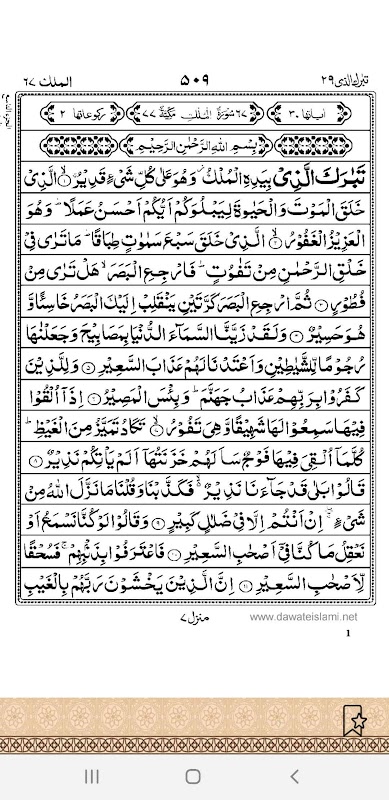 تبرك الذی ۲۹
۵۰۹
الملك ۶۷
اٰیاتها ۳۰
۶۷ سُوْرَةُ الْمُلْكِ مَكِّیَّةٌ ۷۷
رکوعاتها ۲
بِسْمِ اللّٰهِ الرَّحْمٰنِ الرَّحِیْمِ
تَبٰرَكَ الَّذِیْ بِیَدِهِ الْمُلْكُ٘ وَ هُوَ عَلٰى كُلِّ شَیْءٍ قَدِیْرُۙ۝۱ الَّذِیْ
خَلَقَ الْمَوْتَ وَ الْحَیٰوةَ لِیَبْلُوَكُمْ اَیُّكُمْ اَحْسَنُ عَمَلًاؕ وَ هُوَ
الْعَزِیْزُ الْغَفُوْرُۙ۝۲ الَّذِیْ خَلَقَ سَبْعَ سَمٰوٰتٍ طِبَاقًاؕ مَا تَرٰى فِیْ
خَلْقِ الرَّحْمٰنِ مِنْ تَفٰوُتٍؕ فَارْجِعِ الْبَصَرَۙ هَلْ تَرٰى مِنْ
فُطُوْرٍ۝۳ ثُمَّ ارْجِعِ الْبَصَرَ كَرَّتَیْنِ یَنْقَلِبْ اِلَیْكَ الْبَصَرُ خَاسِئًا وَّ
هُوَ حَسِیْرٌ۝۴ وَ لَقَدْ زَیَّنَّا السَّمَآءَ الدُّنْیَا بِمَصَابِیْحَ وَ جَعَلْنٰهَا
رُجُوْمًا لِّلشَّیٰطِیْنِ وَ اَعْتَدْنَا لَهُمْ عَذَابَ السَّعِیْرِ۝۵ وَ لِلَّذِیْنَ
كَفَرُوْا بِرَبِّهِمْ عَذَابُ جَهَنَّمَؕ وَ بِئْسَ الْمَصِیْرُ۝۶ اِذَاۤ اُلْقُوْا
فِیْهَا سَمِعُوْا لَهَا شَهِیْقًا وَّ هِیَ تَفُوْرُۙ۝۷ تَكَادُ تَمَیَّزُ مِنَ الْغَیْظِؕ
كُلَّمَاۤ اُلْقِیَ فِیْهَا فَوْجٌ سَاَلَهُمْ خَزَنَتُهَاۤ اَلَمْ یَاْتِكُمْ نَذِیْرٌ۝۸
قَالُوْا بَلٰى قَدْ جَآءَنَا نَذِیْرٌ ﳔ فَكَذَّبْنَا وَ قُلْنَا مَا نَزَّلَ اللّٰهُ مِنْ
شَیْءٍ ۚۖ اِنْ اَنْتُمْ اِلَّا فِیْ ضَلٰلٍ كَبِیْرٍ۝۹ وَ قَالُوْا لَوْ كُنَّا نَسْمَعُ اَوْ
نَعْقِلُ مَا كُنَّا فِیْۤ اَصْحٰبِ السَّعِیْرِ۝۱۰ فَاعْتَرَفُوْا بِذَنْۢبِهِمْۚ فَسُحْقًا
لِّاَصْحٰبِ السَّعِیْرِ۝۱۱ اِنَّ الَّذِیْنَ یَخْشَوْنَ رَبَّهُمْ بِالْغَیْبِ
منزل ۷
www.dawateislami.net
1